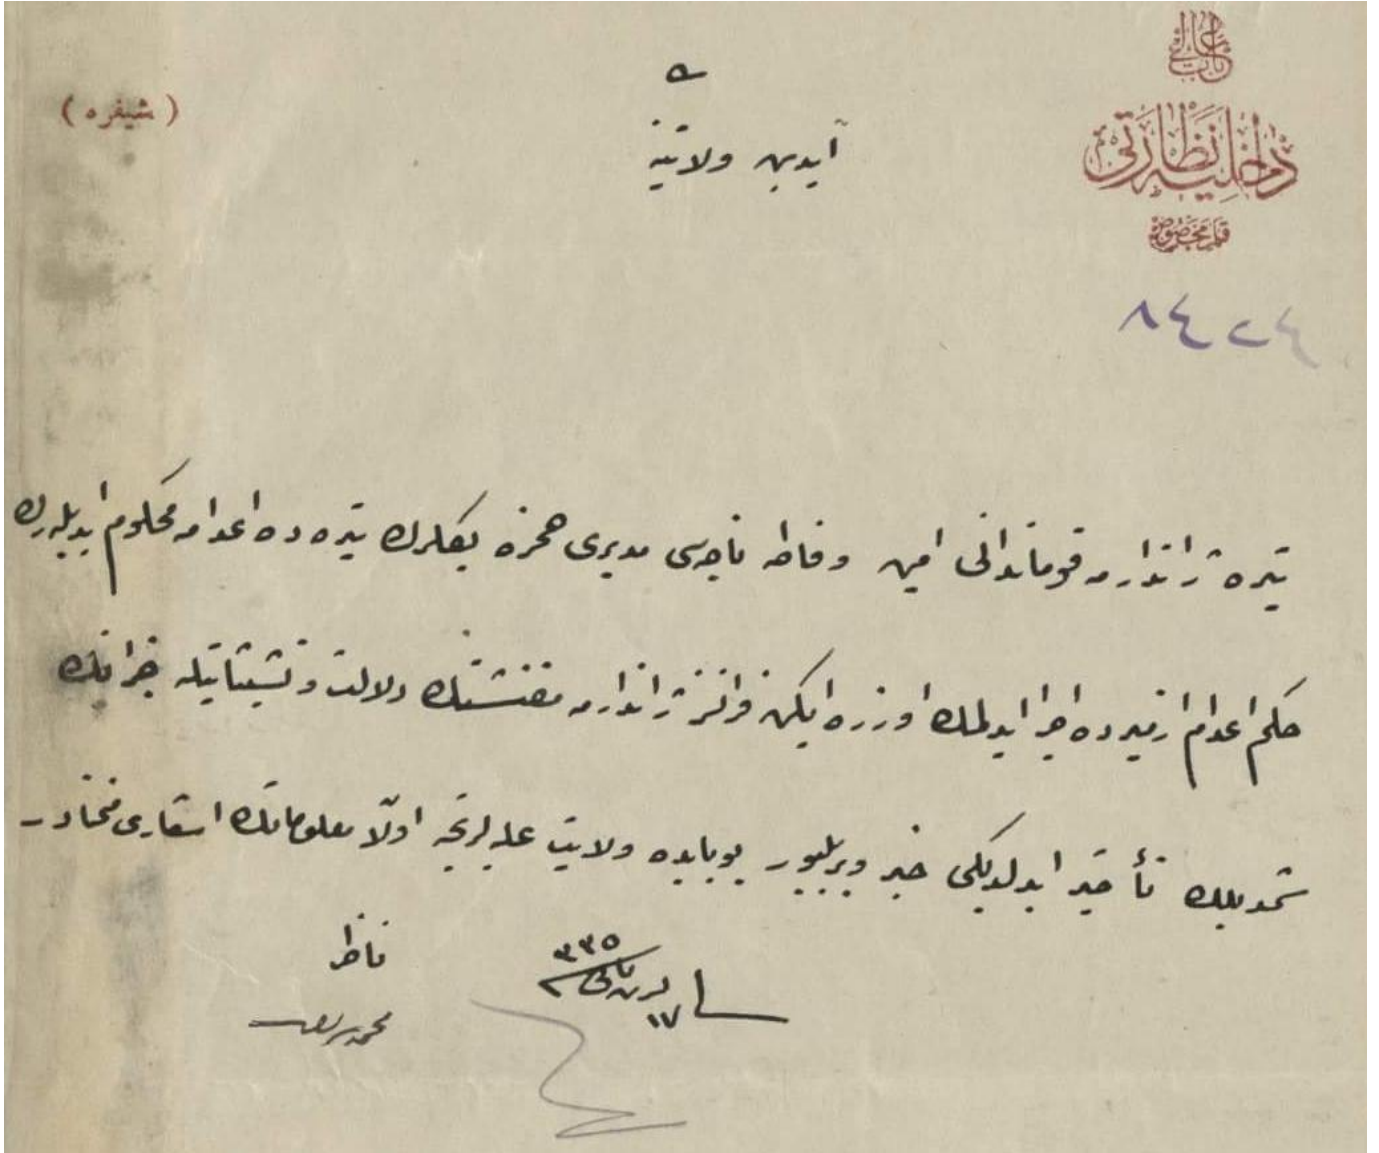 باب عالی
داخلیه نظارتی
قلم مخصوص
(شیفره)
آیدین ولایتنه
٤٢٤٨
تیره ژاندارمه قوماندانی امین و فاطه ناحیه‌سی مدیری حمزه بكلرك تیره‌ده اعدامه محكوم ایدیله‌رك
حكم اعدام ازمیرده اجرا ایدلمك اوزره ایكن فرانسز ژاندارمه مفتشنك دلالت و تشبثاتیله اجرانك
شمدیلك تأخیر ایدلدیكی خبر ویریلیور بوبابده ولایت علیه‌لرنجه اولان معلوماتك اشعاری متمنادر
١٧ كانون ثانی ٣٣٥
ناظر